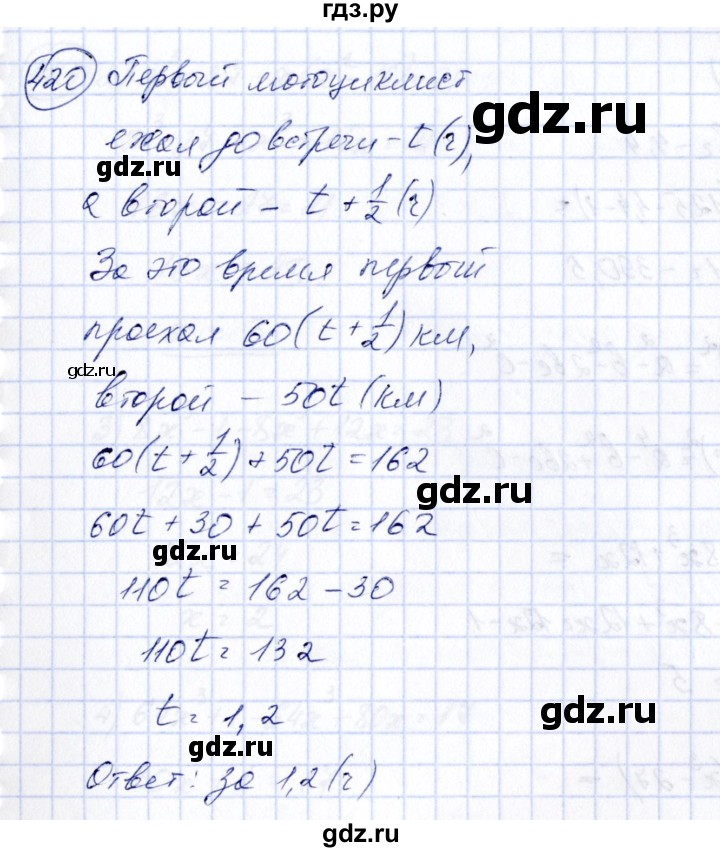 гдз.ру
420 Первый мотоциклист
gdz.ru
ехал до встречи – t (ч),
gdz.ru
а второй – t + 1/2 (ч)
За это время первый
проехал 60(t + 1/2) км,
gdz.ru
второй – 50t (км)
60(t + 1/2) + 50t = 162
gdz.ru
60t + 30 + 50t = 162
gdz.ru
110t = 162 – 30
110t = 132
t = 1,2
gdz.ru
Ответ: за 1,2 (ч)
gdz.ru
gdz.ru